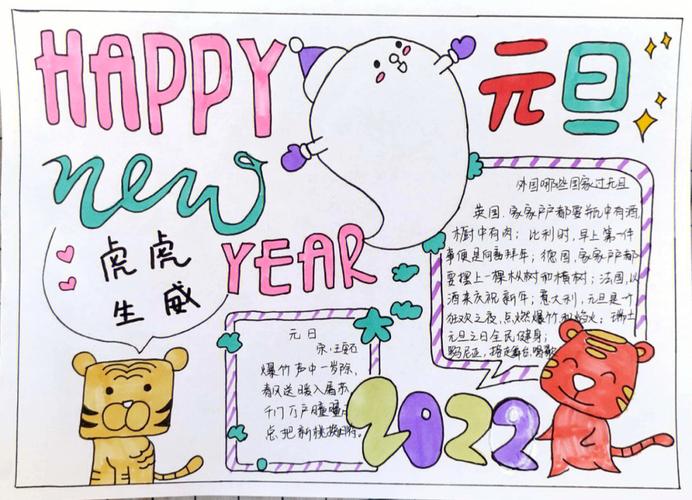 HAPPY
元旦
new
YEAR
虎虎
生威
外国哪些国家过元旦
英国,家家户户都要瓶中有酒,
橱中有肉;比利时,早上第一件
事便是向畜拜年;德国,家家户户都
要摆上一棵枞树和横树;法国,以
酒来庆祝新年;意大利,元旦是一
狂欢之夜,点燃爆竹和焰火;瑞士
元旦之日全民健身;
元日
宋·王安石
爆竹声中一岁除,
春风送暖入屠苏
千门万户曈曈
总把新桃换旧符。
2022